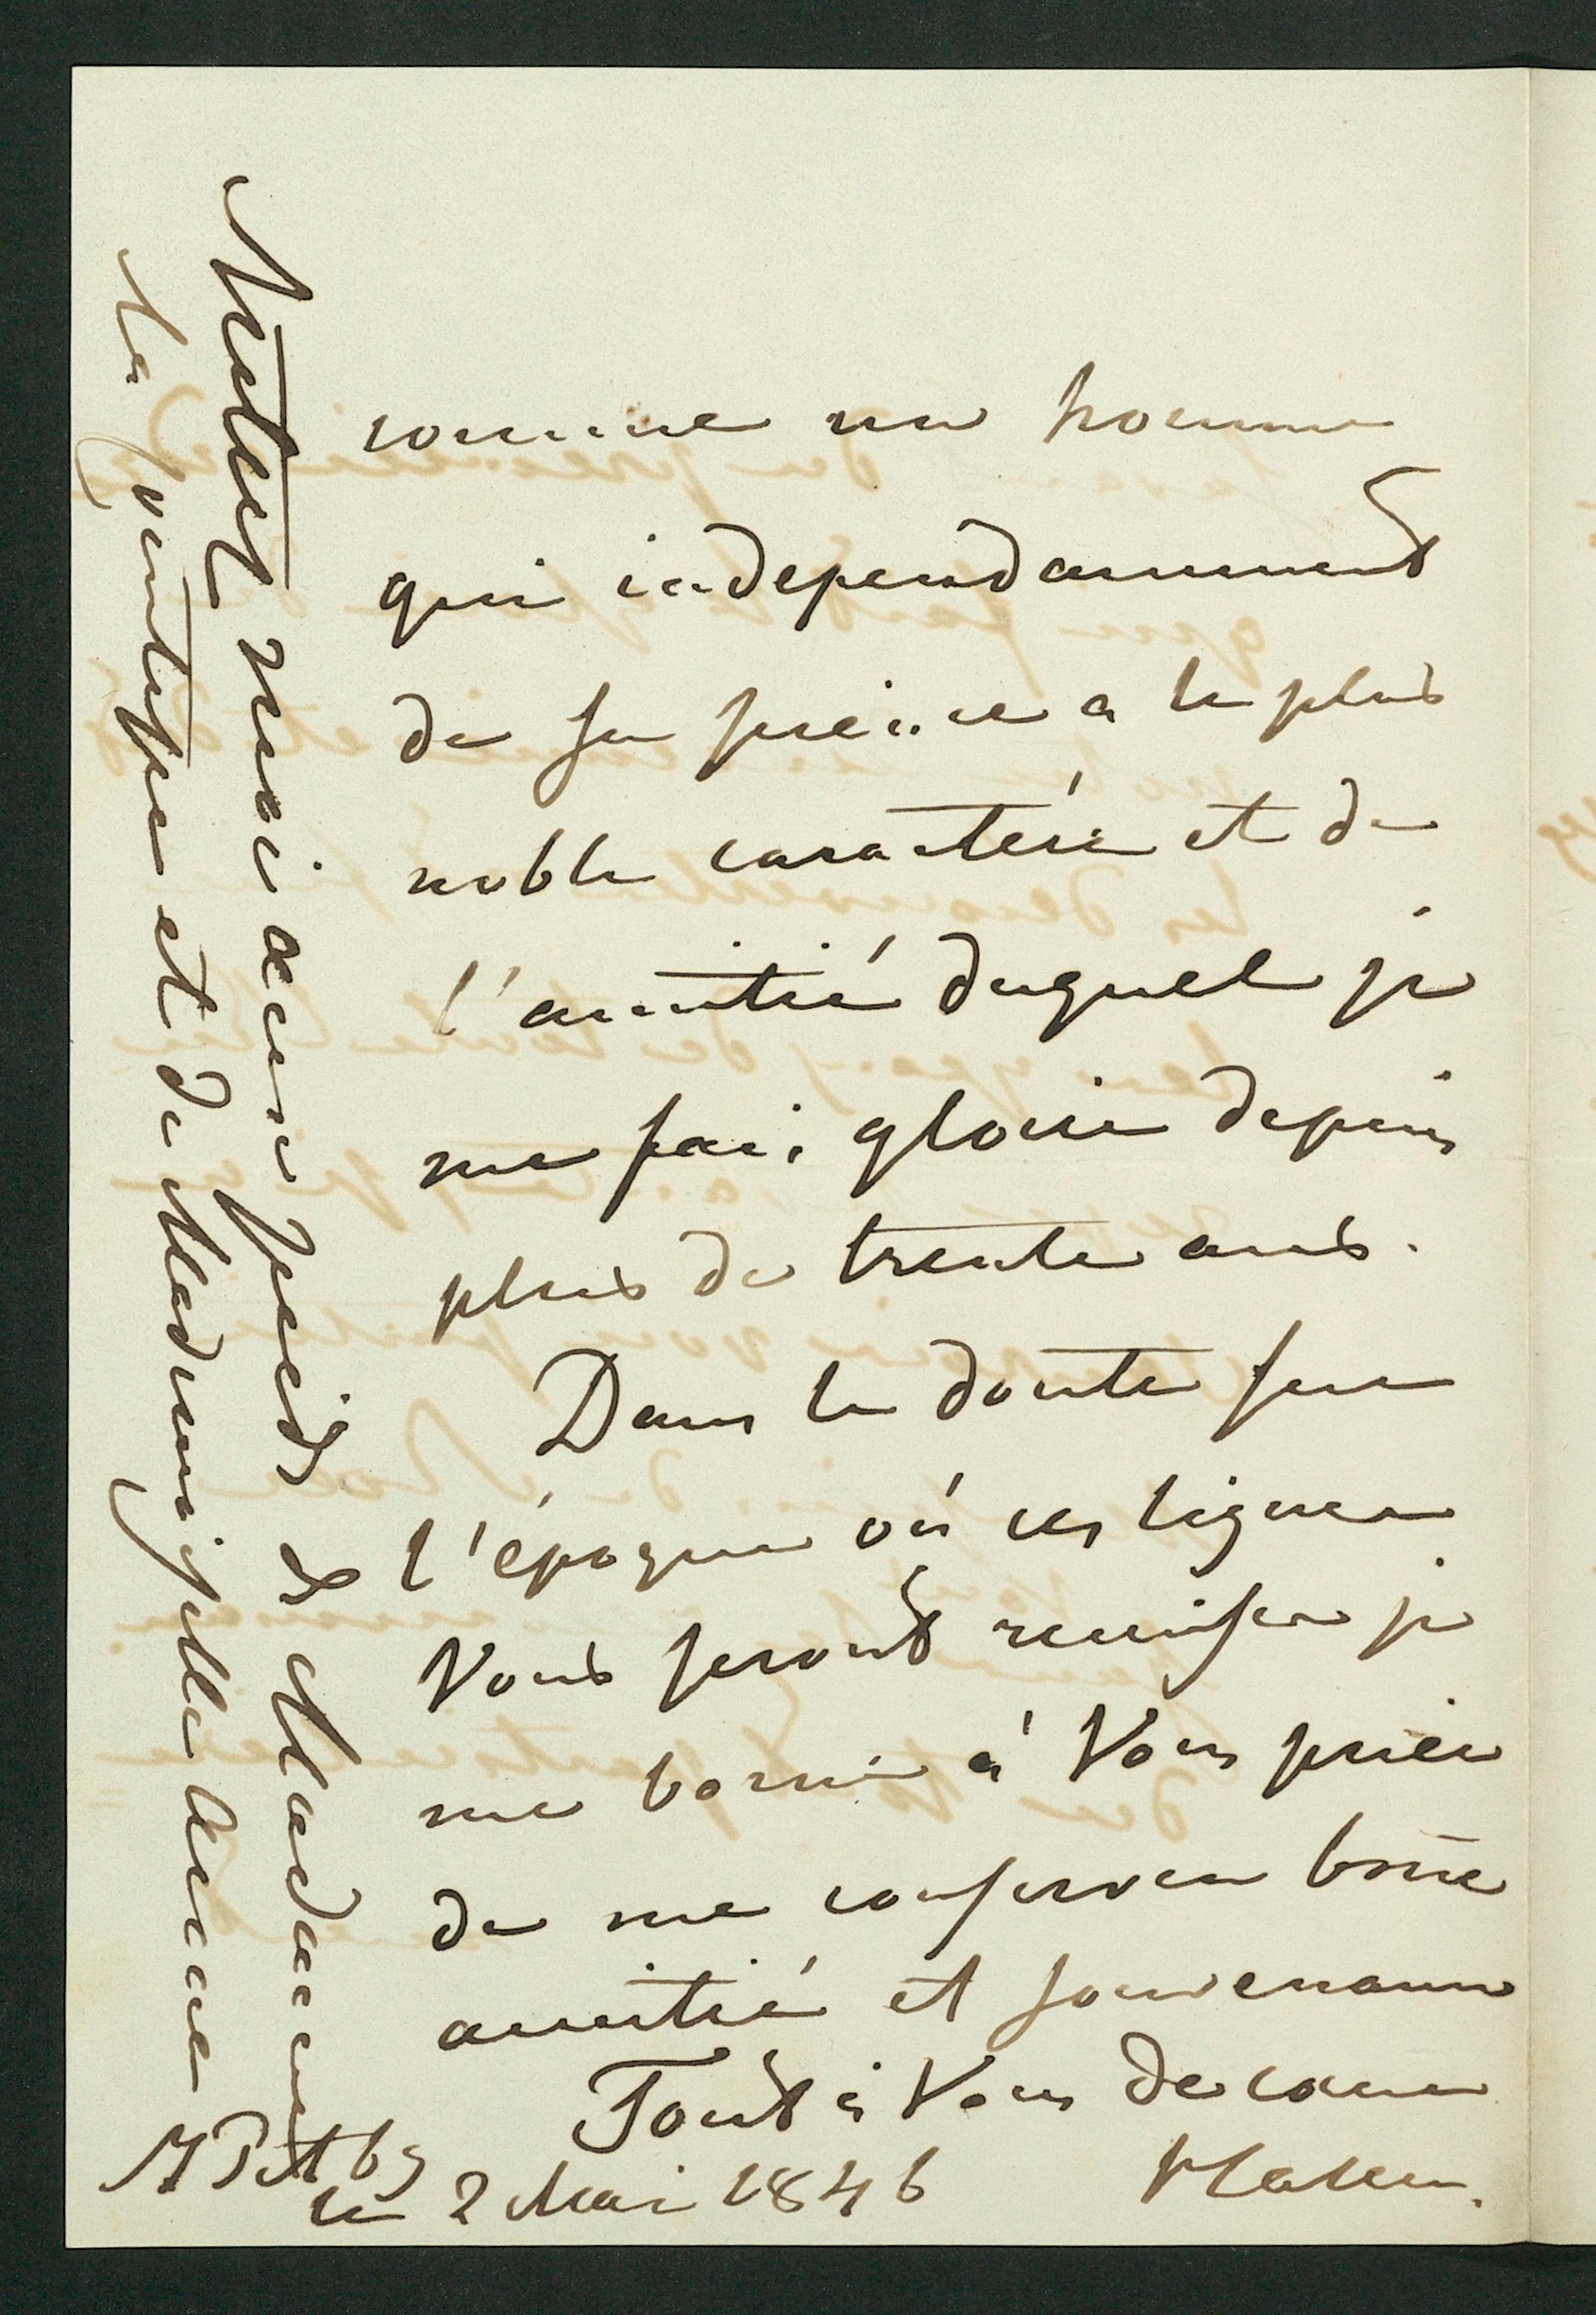 comme un homme
qui independamment
de sa science a le plus
noble caractère et de
l'amitié duquel je
me fais gloire depuis
plus de trente ans.
Dans le doute sur
l'époque où ces lignes
Vous seront remises je
me borne à Vous prier
de me conserver bone
amitié et souvenance
Tout à Vous de coeur
Platen.
St Petbg
le 2 Mai 1846
Mettez moi aux pieds de Madame
la et de Mademoiselle